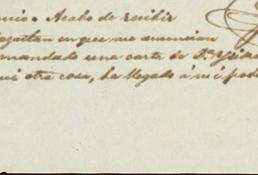 Acabo de recibir
en que me anuncian
mandado una carta de Dn
otra cosa, ha llegado á mi pod